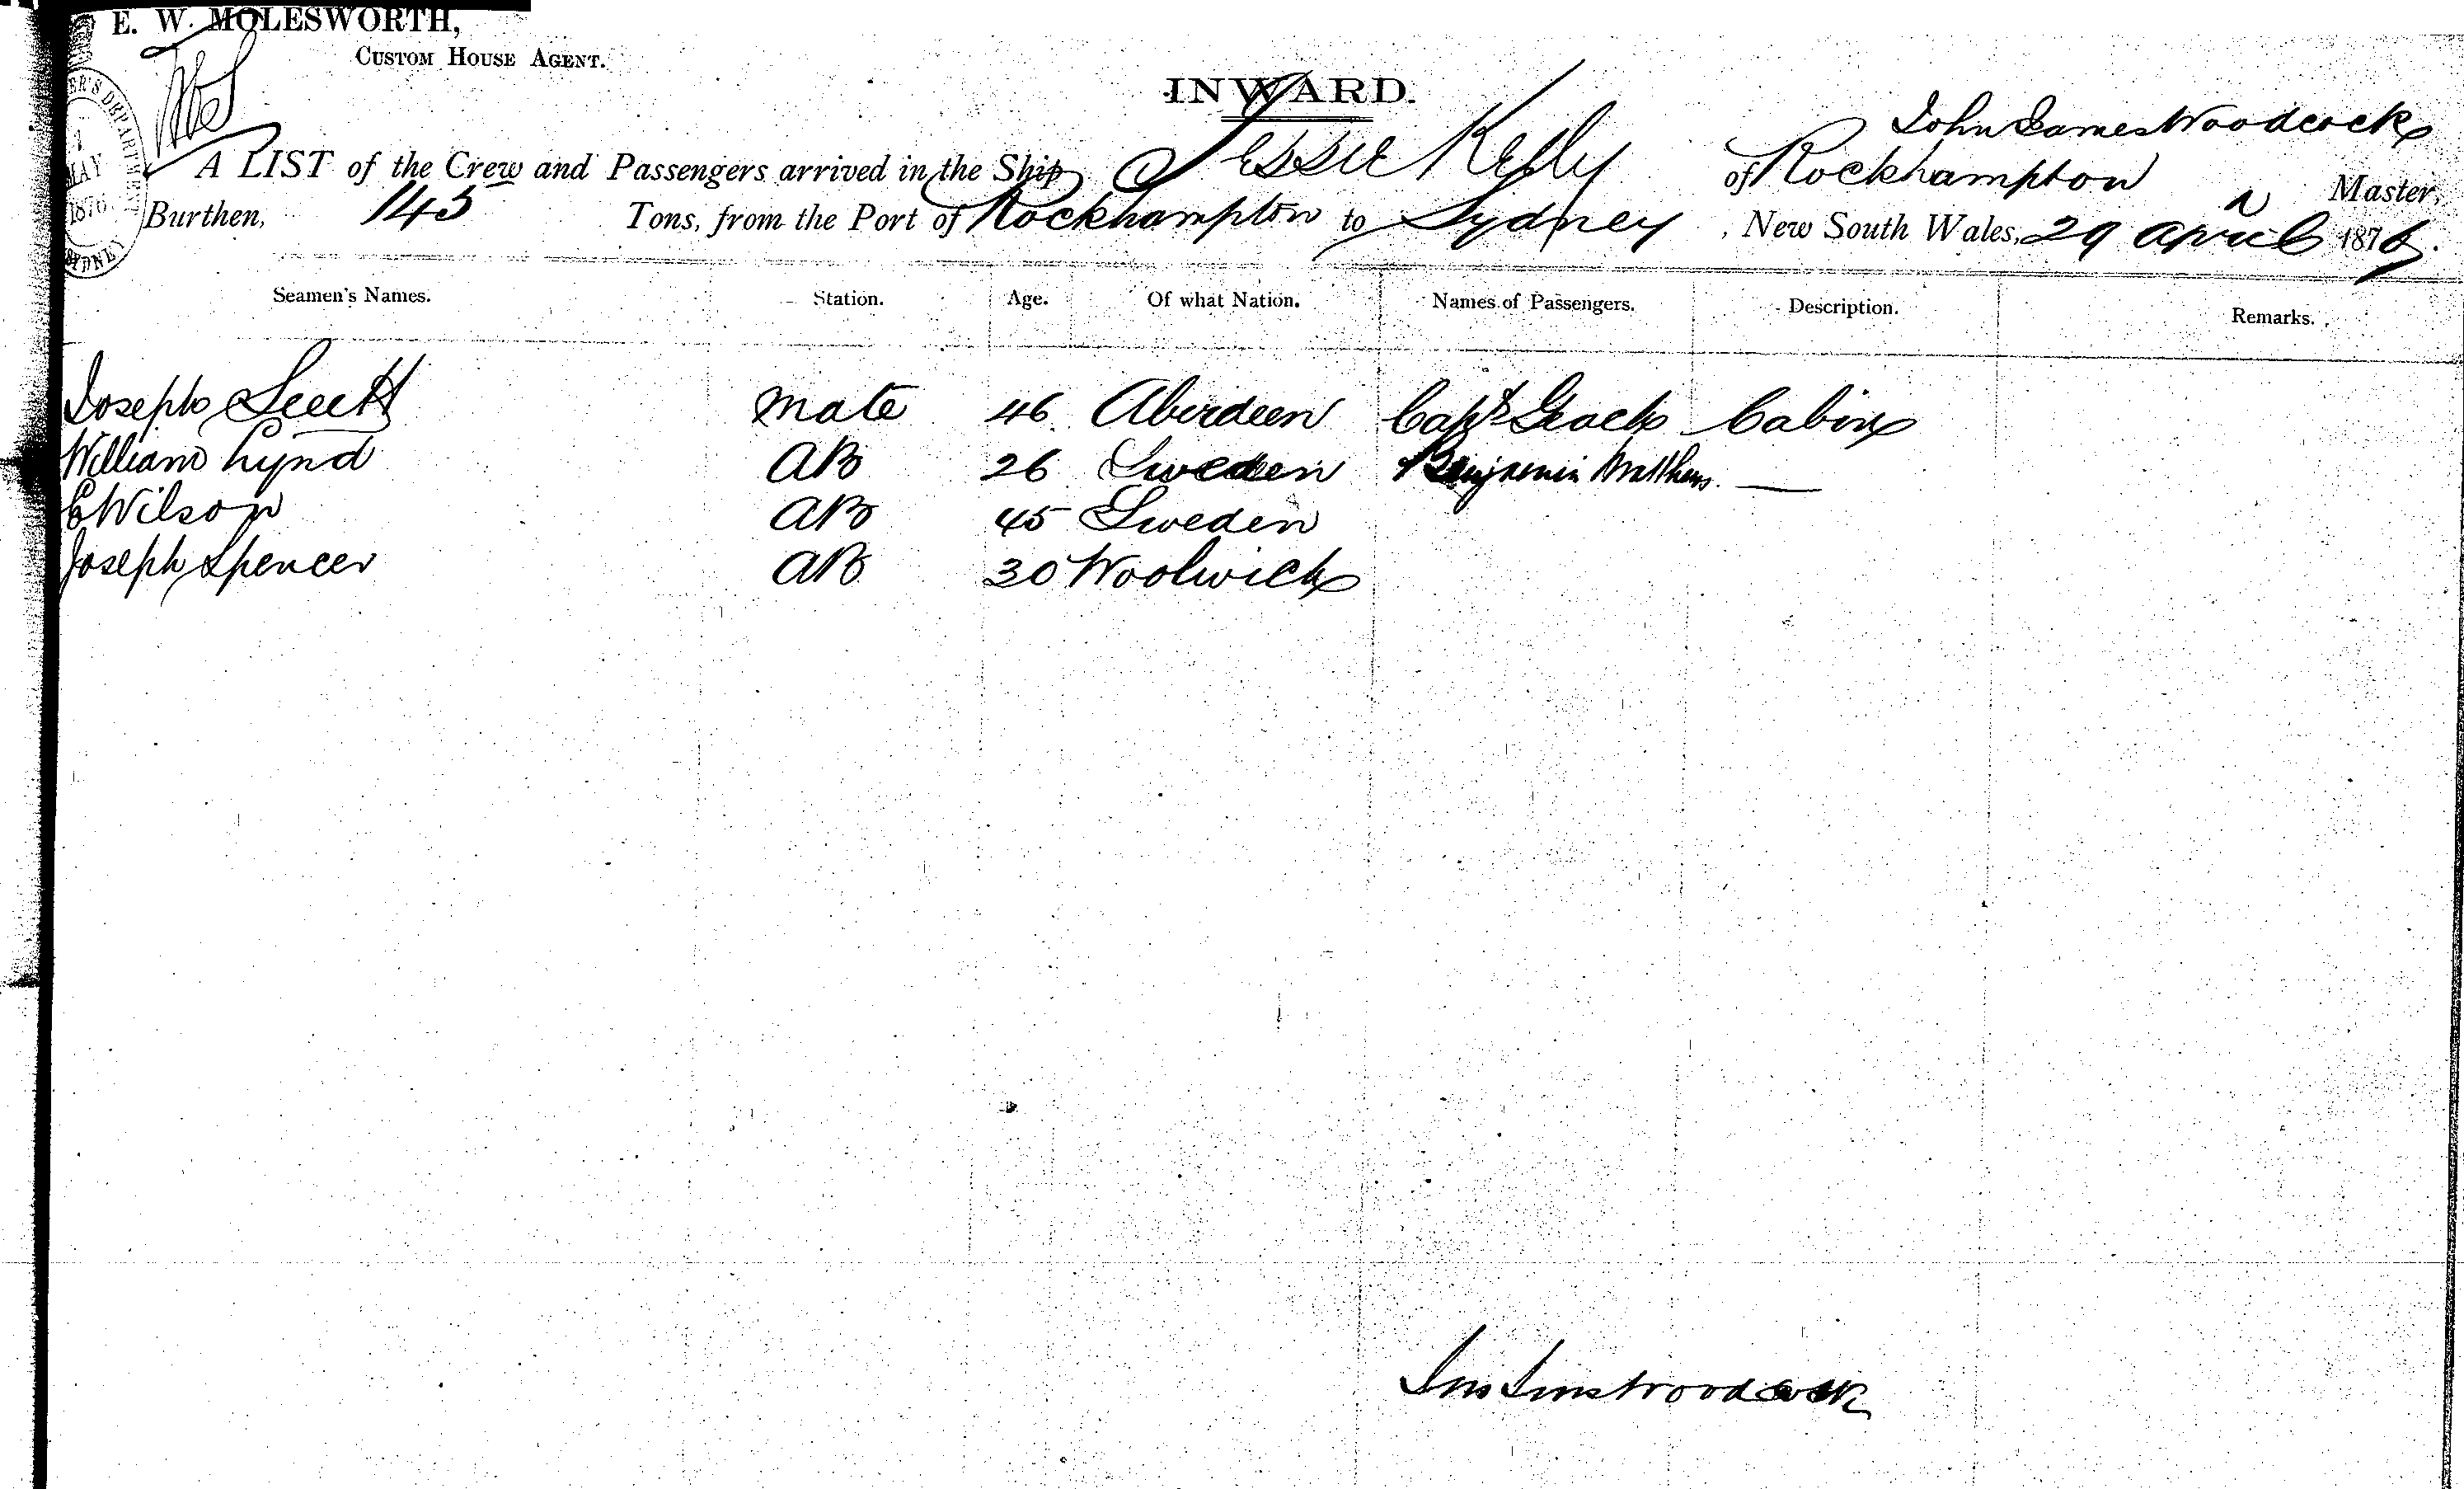 E. W. MOLESWORTH,
CUSTOM HOUSE AGENT.
INWARD.
John James Woodcock
A LIST of the Crew and Passengers arrived in the Ship Jessie Kelly of Rockhampton Master,
Burthen, 145 Tons, from the Port of Rockhampton to Sydney, New South Wales, 29 April 1876.
MAY
1876
SYDNEY
Seamen's Names. Station. Age. Of what Nation. Names of Passengers. Description. Remarks.
Joseph Mate 46 Aberdeen Capt Cabin
William Lynd AB 26 Sweden Benjamin Matthews —
C Wilson AB 45 Sweden
Joseph Spencer AB 30 Woolwich
Jno Jms Woodcock